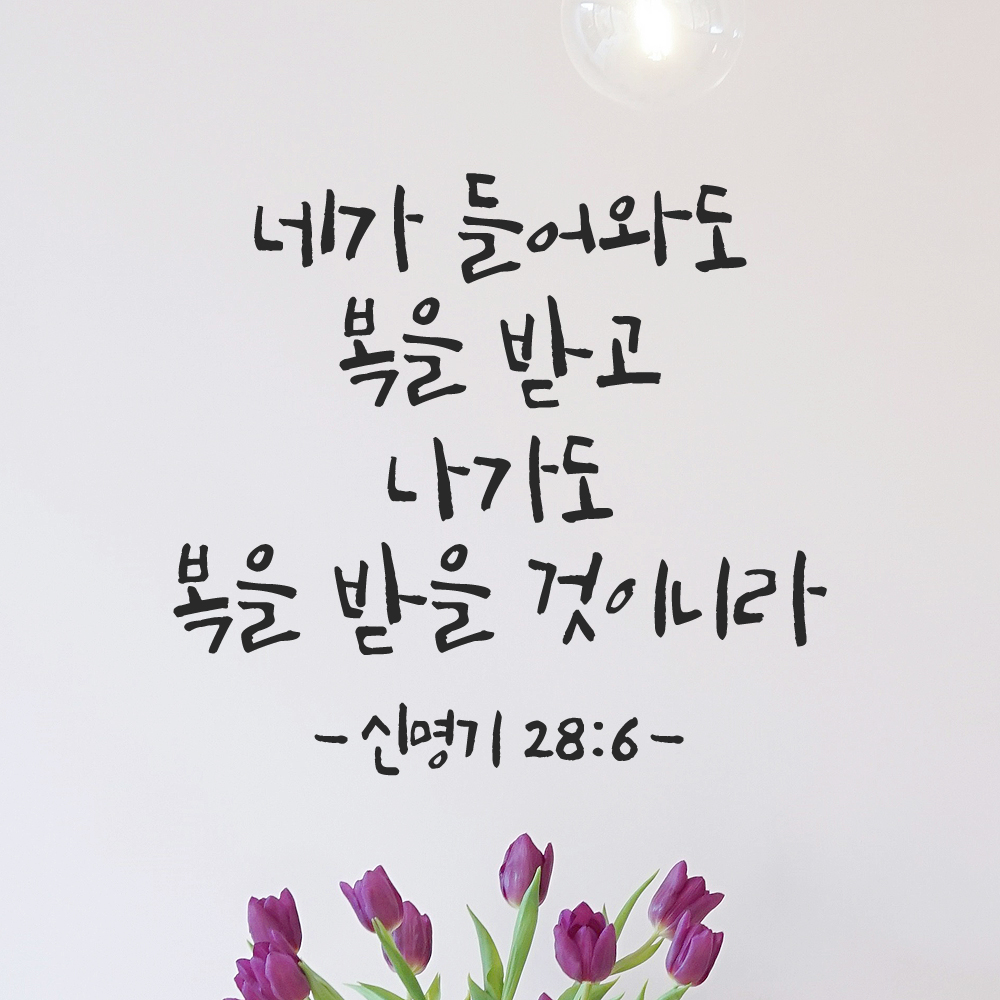 네가 들어와도
복을 받고
나가도
복을 받을 것이니라
- 신명기 28:6 -